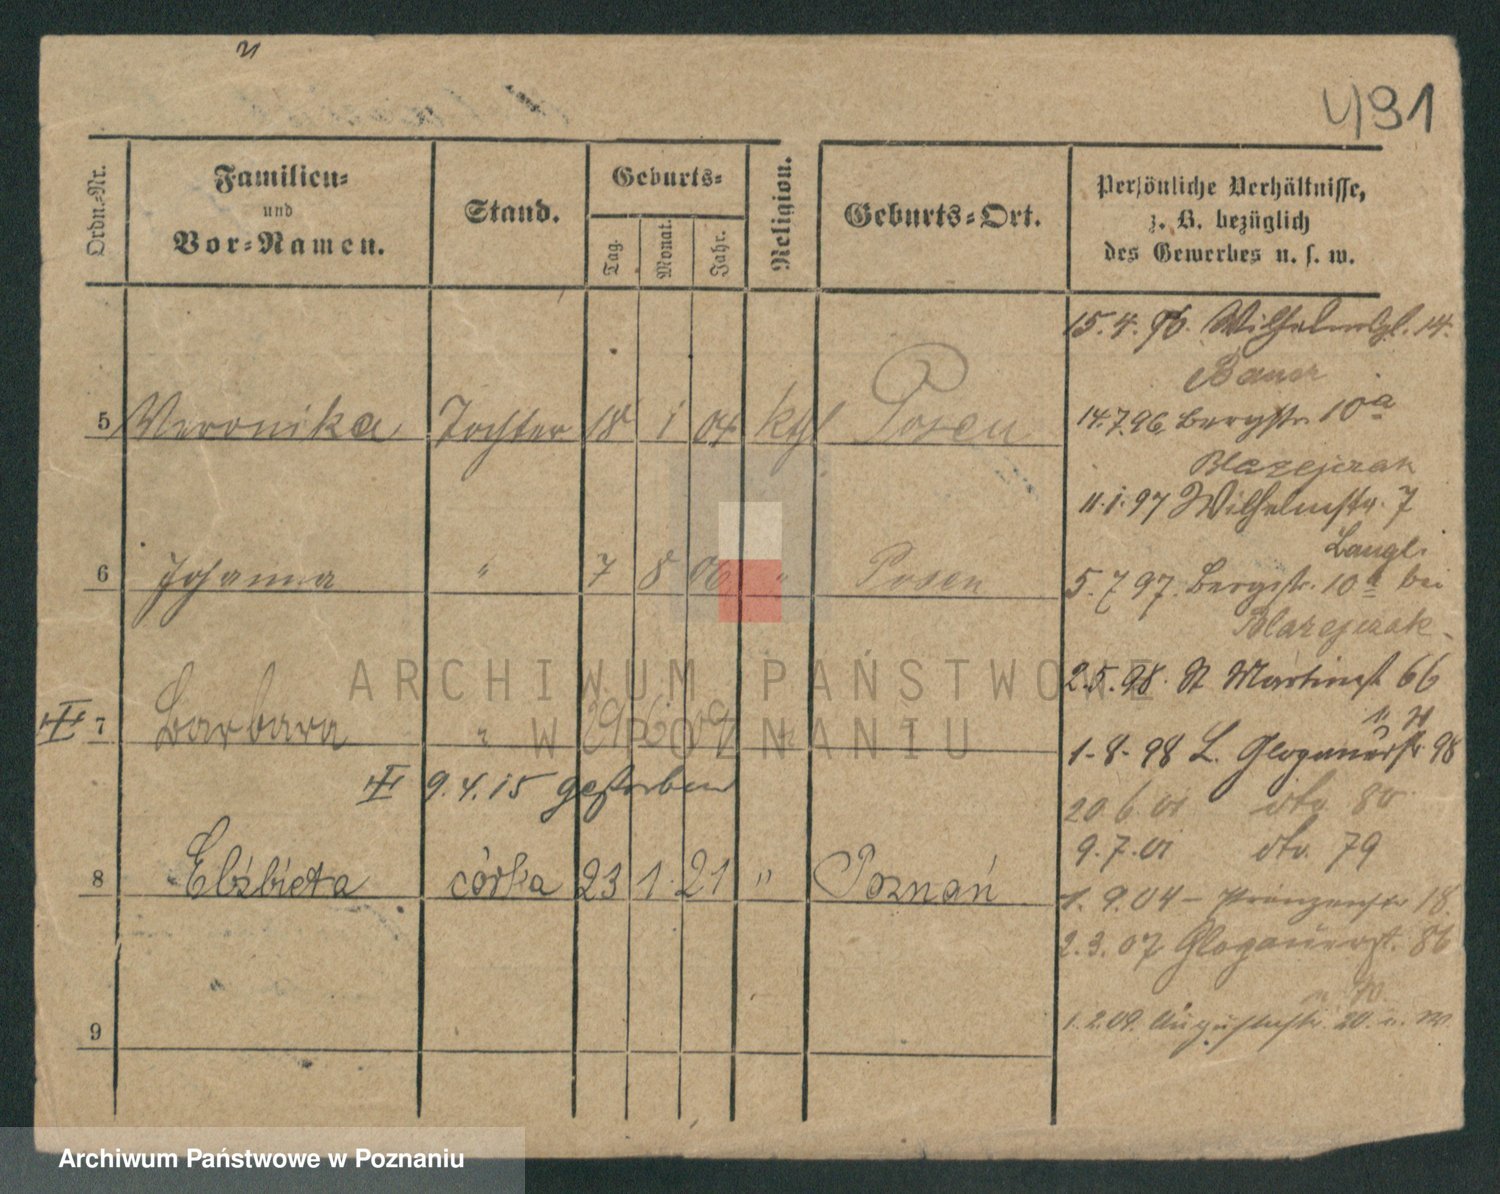 491
Ordn.-Nr.
Familien-
und
Vor-Namen.
Stand.
Geburts-
Tag.
Monat.
Jahr.
Religion.
Geburts-Ort.
Persönliche Verhältnisse,
z. B. bezüglich
des Gewerbes u. s. w.
5 Veronika Tochter 18 1 04 kth Posen
6 Johanna " 7 8 06 " Posen
7 Barbara " 29 6 09 " "
9.4.15 gestorben
8 Elżbieta córka 23 1 21 " Poznań
9
15.4.96. Wilhelmspl. 14.
Bauer
14.7.96. Bergstr. 10a
Blazejczak
11.1.97 Wilhelmstr. 7
5.7.97. Bergstr. 10a bei
Blazejczak
2.5.98. St Martinst 66
1-8-98 L. Glogauerstr 98
20.6.01 dto 80
9.7.01 dto. 79
1.9.04 - Prinzenstr 18.
2.3.07 Glogauerst. 86
1.2.09. Augustastr. 20
ARCHIWUM PAŃSTWOWE
W POZNANIU
Archiwum Państwowe w Poznaniu